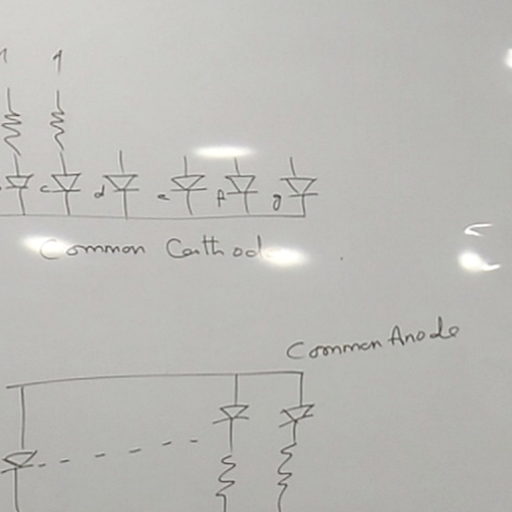 1 1
c d e f g
Common Cathod
Common Anode